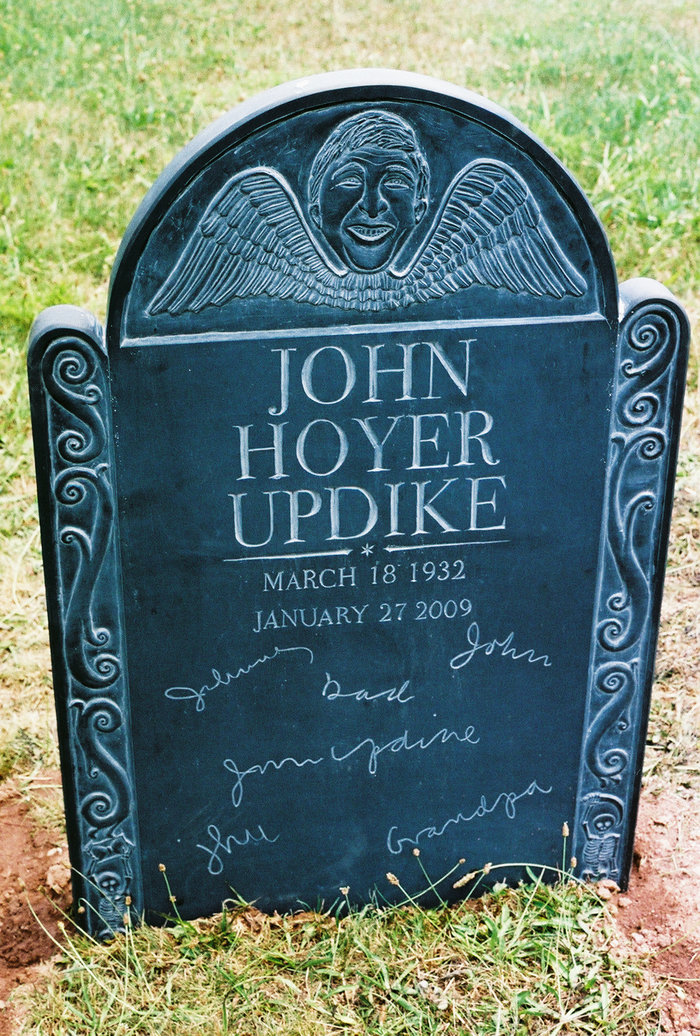 JOHN
HOYER
UPDIKE
MARCH 18 1932
JANUARY 27 2009
Johnny John
Dad
John Updike
Grandpa